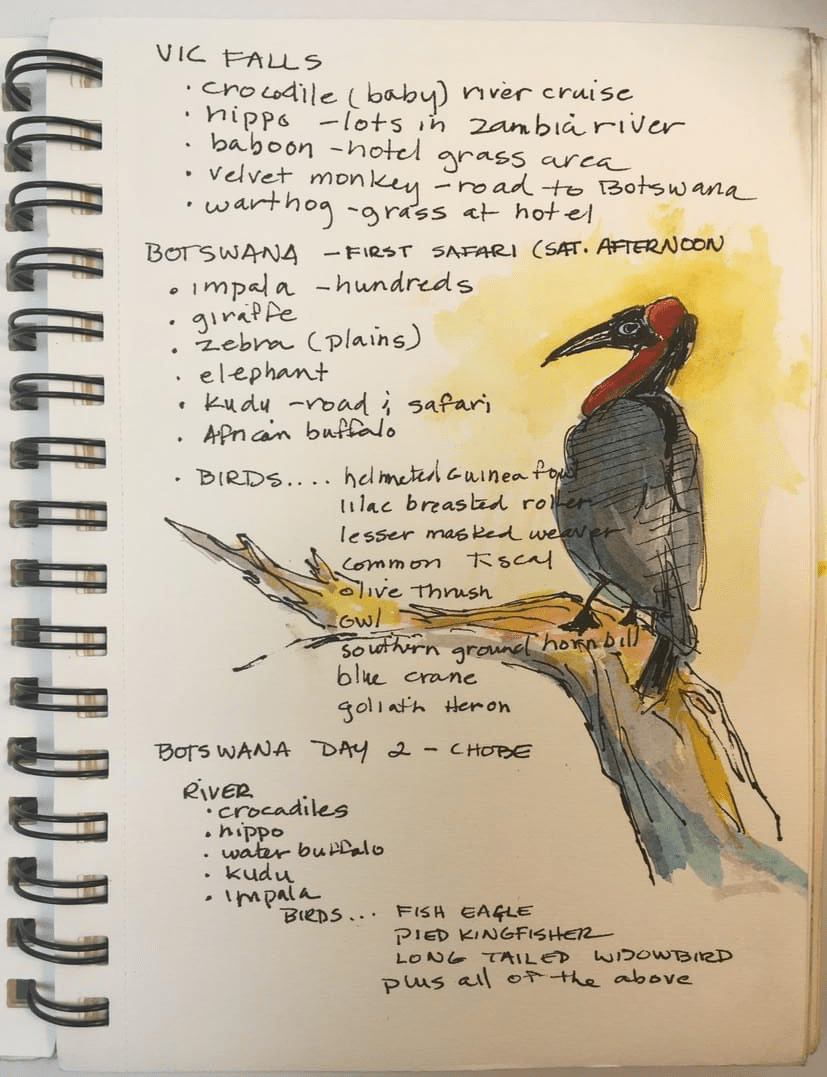 VIC FALLS
· crocodile (baby) river cruise
· hippo - lots in zambia river
· baboon - hotel grass area
· velvet monkey - road to Botswana
· warthog - grass at hotel
BOTSWANA - FIRST SAFARI (SAT. AFTERNOON
· impala - hundreds
· giraffe
· zebra (plains)
· elephant
· kudu - road & safari
· African buffalo
· BIRDS.... helmeted Guinea fowl
lilac breasted roller
lesser masked weaver
common fiscal
olive thrush
owl
southern ground hornbill
blue crane
goliath Heron
BOTSWANA DAY 2 - CHOBE
RIVER
· crocadiles
· hippo
· water buffalo
· kudu
· impala
BIRDS... FISH EAGLE
PIED KINGFISHER
LONG TAILED WIDOWBIRD
plus all of the above